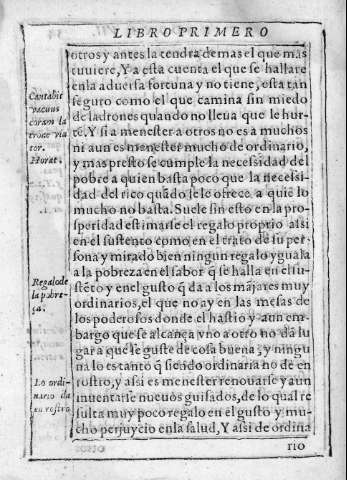 LIBRO PRIMERO
otros y antes la tendra de mas el que mas
tuuiere, Y a esta cuenta el que se hallare
en la aduersa fortuna y no tiene, esta tan
seguro como el que camina sin miedo
de ladrones quando no lleua que le hur-
tẽ. Y si a menester a otros no es a muchos
ni aun es menester mucho de ordinario,
y mas presto se cumple la necessidad del
pobre a quien basta poco que la necessi-
dad del rico quãdo le le ofrece a quiẽ lo
mucho no basta. Suele sin esto en la pros-
peridad estimarse el regalo proprio assi
en el sustento como en el trato de su per
sona y mirado bien ningun regalo yguala
a la pobreza en el sabor q̃ se halla en el su-
stẽto y en el gusto q̃ da a los mãjares muy
ordinarios, el que no ay en las mesas de
los poderosos donde el hastio y aun em-
bargo que se alcança y no a otro no da lu
gar a que se guste de cosa buena, y ningu
na lo es tanto q̃ siendo ordinaria no de en
rostro, y assi es menester renouarse y aun
inuentarse nueuos guisados, de lo qual re
sulta muy poco regalo en el gusto y mu-
cho perjuycio en la salud, Y assi de ordina
rio
Cantabit
vacuus
coram la
trone via
tor.
Horat.
Regalo de
la pobre-
ça.
Lo ordi-
nario da
en rostro